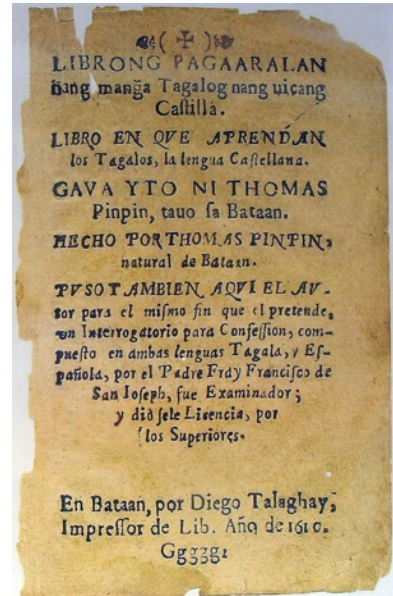 ( ✠ )
LIBRONG PAGAARALAN
nang manga Tagalog nang uicang
Caſtilla.
LIBRO EN QVE APRENDAN
los Tagalos, la lengua Caſtellana.
GAVA YTO NI THOMAS
Pinpin, tauo ſa Bataan.
HECHO POR THOMAS PINPIN,
natural de Bataan.
PVSO TAMBIEN AQVI EL AV-
tor para el miſmo fin que el pretende,
vn Interrogatorio para Confeſſion, com-
pueſto en ambas lenguas Tagala, y Eſ-
pañola, por el Padre Fray Franciſco de
San Ioſeph, fue Examinador;
y dió ſele Lisencia, por
los Superiores.
En Bataan, por Diego Talaghay,
Impreſſor de Lib. Año de 1610.